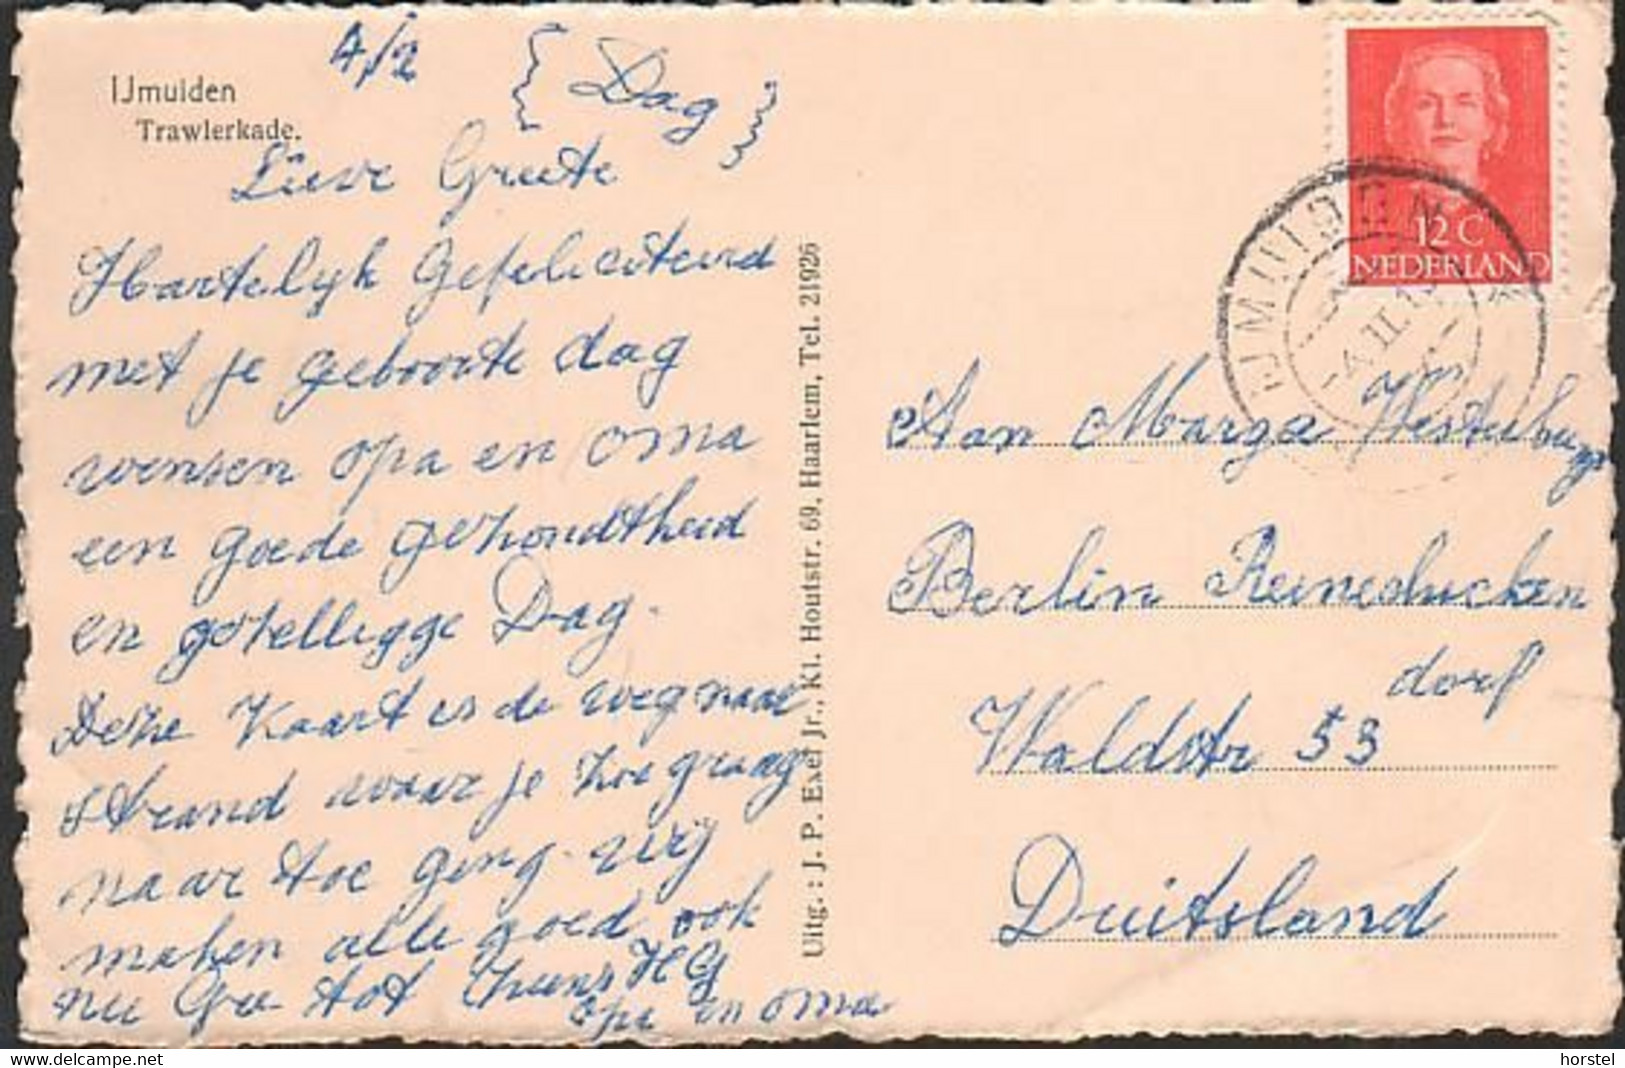 4/2 { Dag }
IJmuiden
Trawlerkade.
Lieve Greete
Hartelijk gefeliciteerd
met je geboorte dag
wensen opa en oma
een goede gezondtheid
en gezelligge Dag.
Deze Kaart is de weg naar
strand waar je zoo graag
naar toe ging. wij
maken alle goed ook
nu Gre tot HG
opa en oma
Uitg.: J. P. Exel Jr., Kl. Houtstr. 69, Haarlem, Tel. 21926
12 C
NEDERLAND
IJMUIDEN
Aan Marga Westerburg
Berlin Reinesducken
dorf
Waldstr 53
Duitsland
horstel